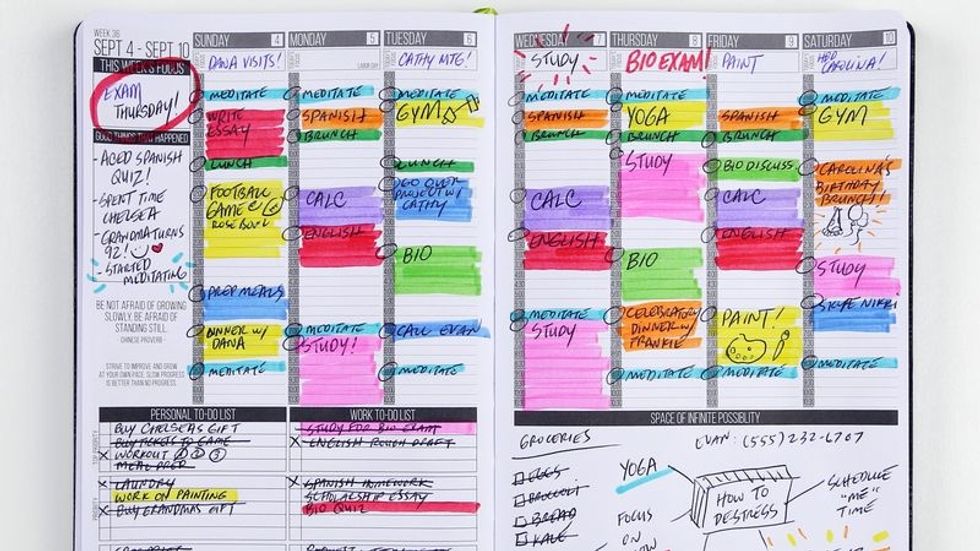 WEEK 36
SEPT 4 - SEPT 10
THIS WEEK'S FOCUS
EXAM
THURSDAY!
GOOD THINGS THAT HAPPENED
- ACED SPANISH
QUIZ!
- SPENT TIME
CHELSEA
- GRANDMA TURNS
92!
- STARTED
MEDITATING
BE NOT AFRAID OF GROWING
SLOWLY, BE AFRAID OF
STANDING STILL.
- CHINESE PROVERB -
STRIVE TO IMPROVE AND GROW
AT YOUR OWN PACE. SLOW PROGRESS
IS BETTER THAN NO PROGRESS.
SUNDAY 4
DANA VISITS!
MEDITATE
WRITE
ESSAY
LUNCH
FOOTBALL
GAME @
ROSE BOWL
PREP MEALS
DINNER W/
DANA
MEDITATE
MONDAY 5
LABOR DAY
MEDITATE
SPANISH
BRUNCH
CALC
ENGLISH
MEDITATE
STUDY!
TUESDAY 6
CATHY MTG!
MEDITATE
GYM
LUNCH
GO OVER
PROJECT W/
CATHY
BIO
CALL EVAN
MEDITATE
WEDNESDAY 7
STUDY
MEDITATE
SPANISH
BRUNCH
CALC
ENGLISH
MEDITATE
STUDY
THURSDAY 8
BIO EXAM!
MEDITATE
YOGA
BRUNCH
STUDY
BIO
CELEBRATORY
DINNER W/
FRANKIE
MEDITATE
FRIDAY 9
PAINT
SPANISH
BRUNCH
BIO DISCUSS
CALC
ENGLISH
PAINT!
MEDITATE
SATURDAY 10
HBD
CAROLINA!
MEDITATE
GYM
CAROLINA'S
BIRTHDAY
BRUNCH!
STUDY
SKYPE NIKKI
MEDITATE
PERSONAL TO-DO LIST
TOP PRIORITY
BUY CHELSEAS GIFT
BUY TICKETS TO GAME
X WORKOUT 1 2 3
MEAL PREP
PRIORITY
X LAUNDRY
WORK ON PAINTING
X BUY GRANDMAS GIFT
WORK TO-DO LIST
STUDY FOR BIO EXAM
X ENGLISH ROUGH DRAFT
X SPANISH HOMEWORK
SCHOLARSHIP ESSAY
BIO QUIZ
SPACE OF INFINITE POSSIBILITY
GROCERIES
EGGS
BROCCOLI
BREAD
KALE
EVAN: (555) 232-6707
YOGA
HOW TO
DESTRESS
SCHEDULE
"ME"
TIME
FOCUS
ON